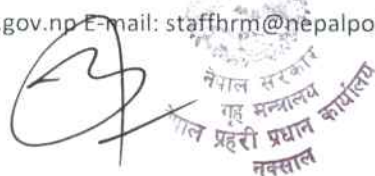 .gov.np E-mail: staffhrm@nepalpo
नेपाल सरकार
गृह मन्त्रालय
पाल प्रहरी प्रधान कार्यालय
नक्साल